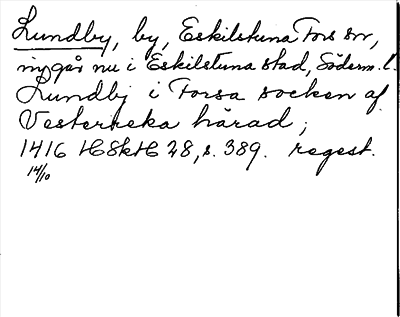 Lundby, by, Eskilstuna Fors sn,
ingår nu i Eskilstuna stad, Söderm. l.
Lundbj i Forsa socken af
Vesterreka härad;
1416 HSkH 28, s. 389. regest.
14/10